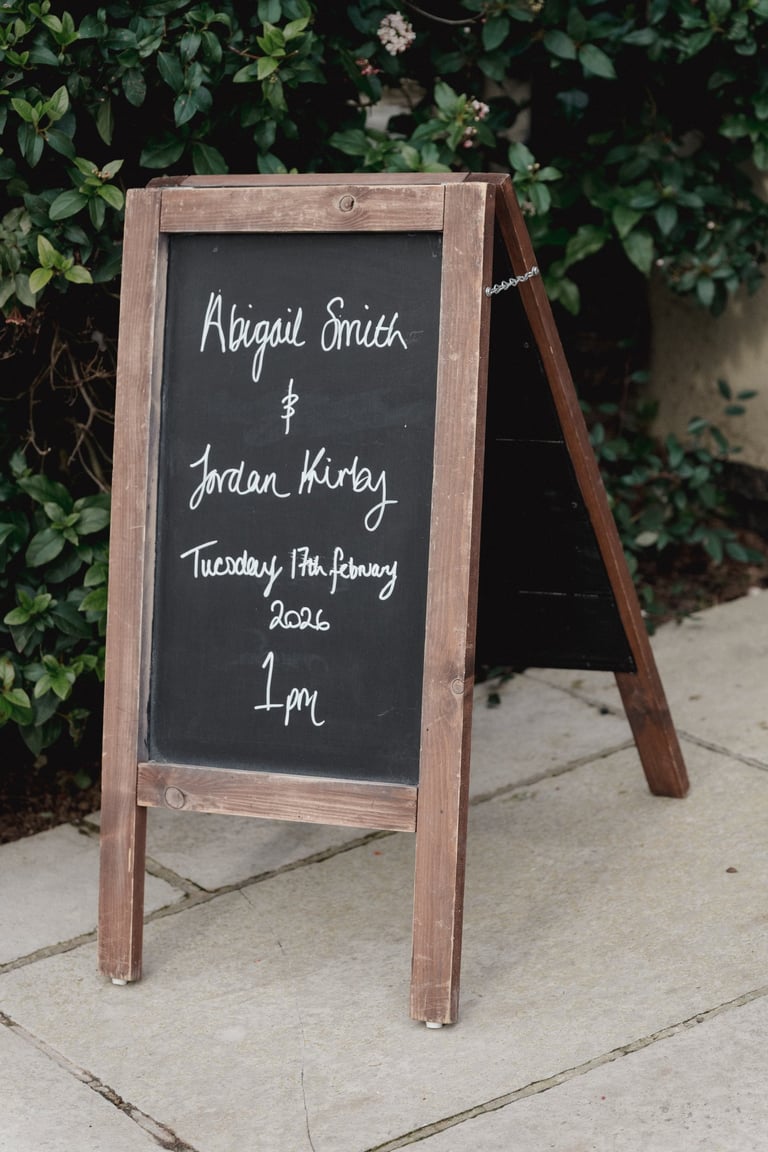 Abigail Smith
&
Jordan Kirby
Tuesday 17th february
2026
1pm